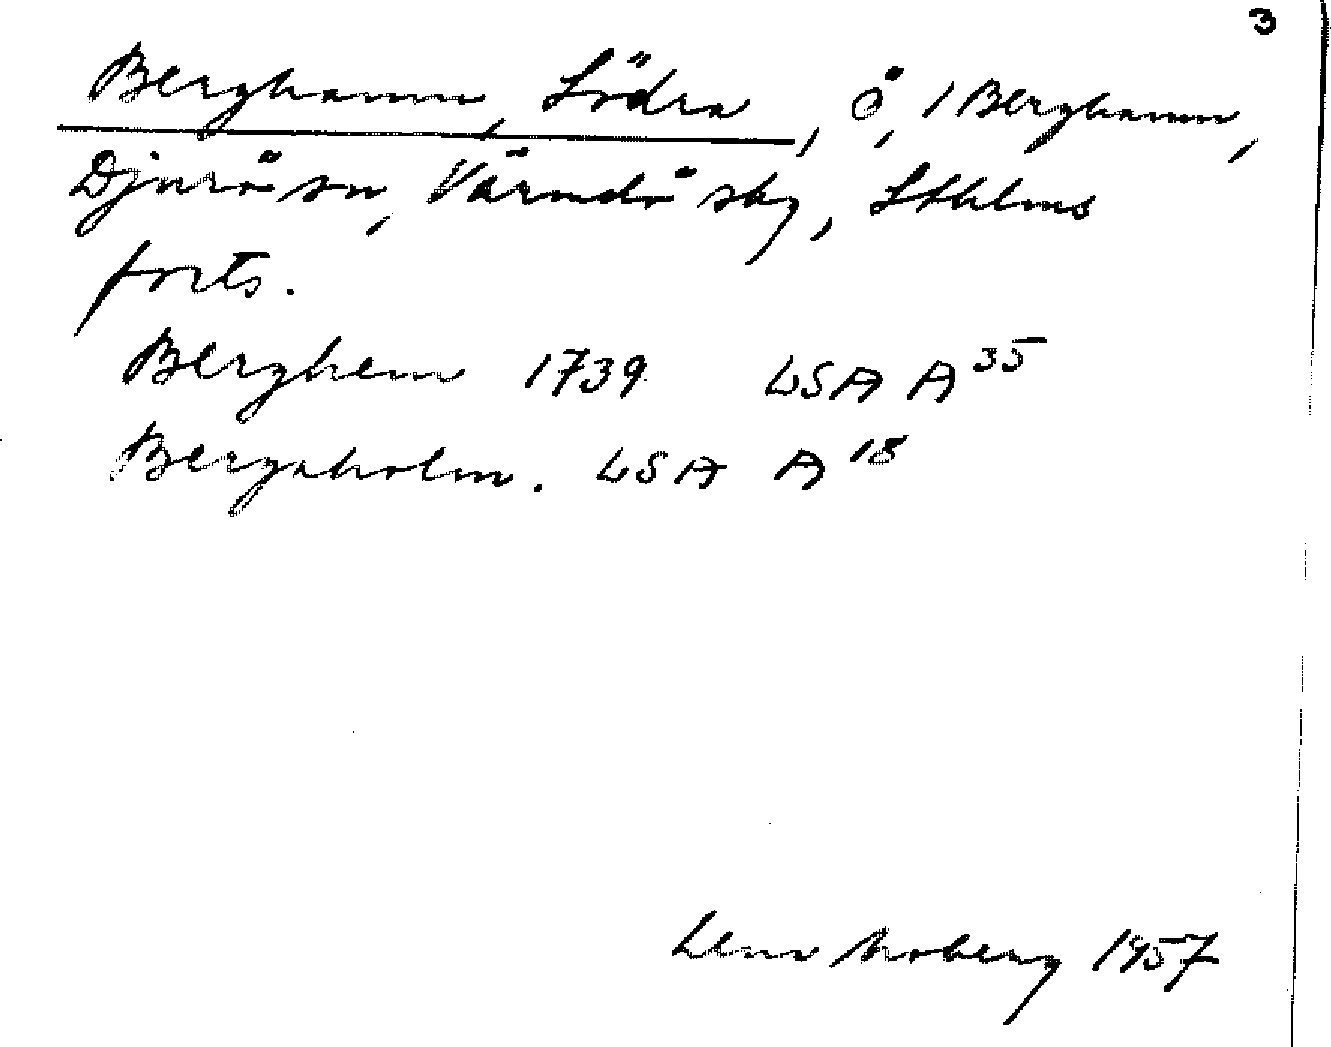 3
Berghamn, Södra, ö, / Berghamn,
Djurö sn, Värmdö sbg, Sthlms
forts.
Berghem 1739 LSA A 35
Bergaholm. LSA A 18
Lena Moberg 1957